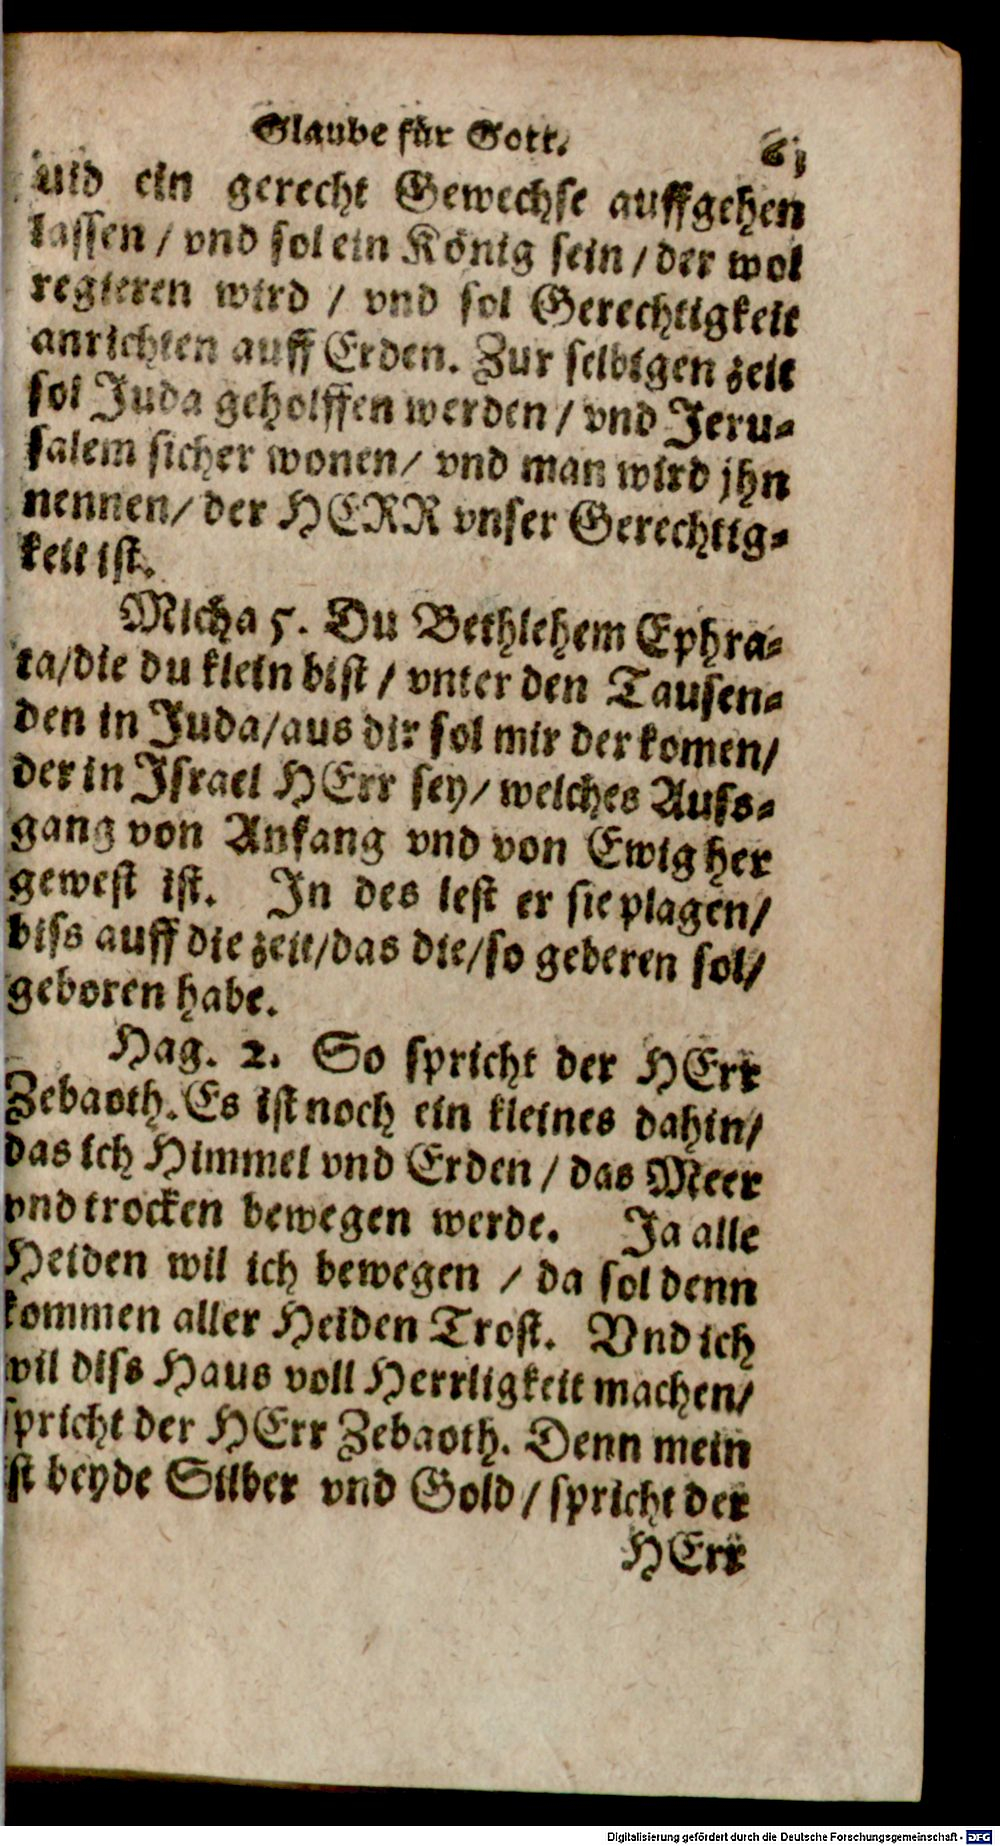 Glaube für Gott. 61
uid ein gerecht Gewechse auffgehen
lassen / vnd sol ein König sein / der wol
regieren wird / vnd sol Gerechtigkeit
anrichten auff Erden. Zur selbigen zeit
sol Juda geholffen werden / vnd Jeru-
salem sicher wonen / vnd man wird jhn
nennen / der HERR vnser Gerechtig-
keit ist.
Micha 5. Du Bethlehem Ephra-
ta / die du klein bist / vnter den Tausen-
den in Juda / aus dir sol mir der komen /
der in Israel HErr sey / welches Auss-
gang von Anfang vnd von Ewig her
gewest ist. In des lest er sie plagen /
biss auff die zeit / das die / so geberen sol /
geboren habe.
Hag. 2. So spricht der HErr
Zebaoth. Es ist noch ein kleines dahin /
das ich Himmel vnd Erden / das Meer
vnd trocken bewegen werde. Ja alle
Heiden wil ich bewegen / da sol denn
kommen aller Heiden Trost. Vnd ich
wil diss Haus voll Herrligkeit machen /
spricht der HErr Zebaoth. Denn mein
ist beyde Silber vnd Gold / spricht der
HErr
Digitalisierung gefördert durch die Deutsche Forschungsgemeinschaft - DFG